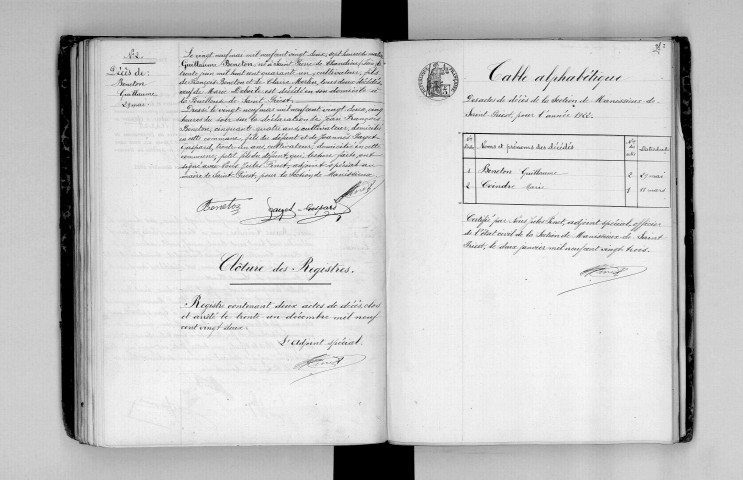 N° 2
Décès de
Beneton
Guillaume
29 mai
Le vingt neuf mai mil neuf cent vingt deux, sept heures du matin
Guillaume Beneton, né à Saint Pierre de Chandieu
trente juin mil huit cent quarante un, cultivateur, fils
de François Beneton et de Claire Merlin, tous deux décédés,
veuf de Marie est décédé en son domicile à
la Fouillouse de Saint Priest.
Dressé le vingt neuf mai mil neuf cent vingt deux, cinq
heures du soir sur la déclaration de Jean François
Beneton, cinquante quatre ans, cultivateur, domicilié
en cette commune, fils du défunt et de Joannès
Gaspard, trente un ans, cultivateur, domicilié en cette
commune, petit fils du défunt, qui, lecture faite, ont
signé avec Nous, Jules Pinet, adjoint spécial au
maire de Saint Priest, pour la Section de Manissieux.
Beneton Gaspard
Clôture des Registres.
Registre contenant deux actes de décès, clos
et arrêté le trente un décembre mil neuf
cent vingt deux.
L'adjoint spécial,
Table alphabétique
Des actes de décès de la Section de Manissieux de
Saint Priest, pour l'année 1922.
Noms et prénoms des décédés
1 Beneton Guillaume 2 29 mai
2 Coindre Marie 1 11 mars
Certifié par Nous, Jules Pinet, adjoint spécial, officier
de l'état civil de la Section de Manissieux de Saint
Priest, le deux janvier mil neuf cent vingt trois.